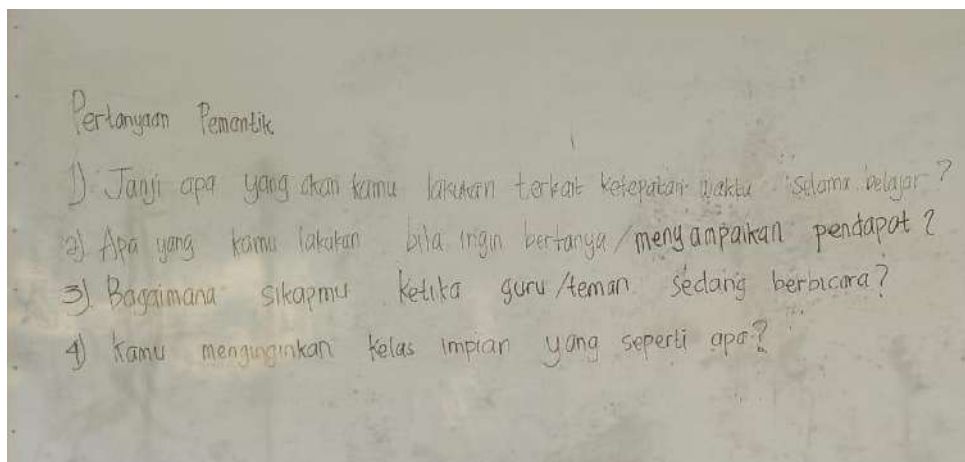 Pertanyaan Pemantik
1) Janji apa yang akan kamu lakukan terkait ketepatan waktu selama belajar?
2) Apa yang kamu lakukan bila ingin bertanya/menyampaikan pendapat?
3) Bagaimana sikapmu ketika guru/teman sedang berbicara?
4) Kamu menginginkan kelas impian yang seperti apa?